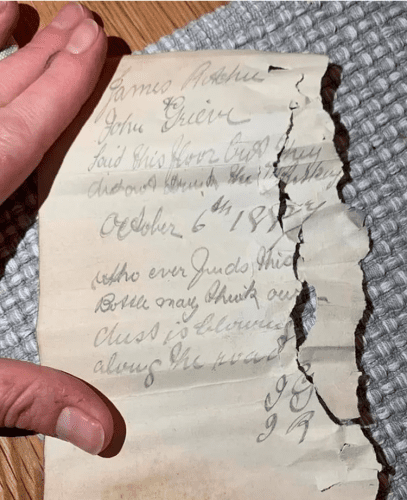 James Ritchie
+
John Grieve
laid this floor but they
did not drink the whisky
October 6th 1887
who ever finds this
Bottle may think our
dust is blowing
along the road
J G
J R